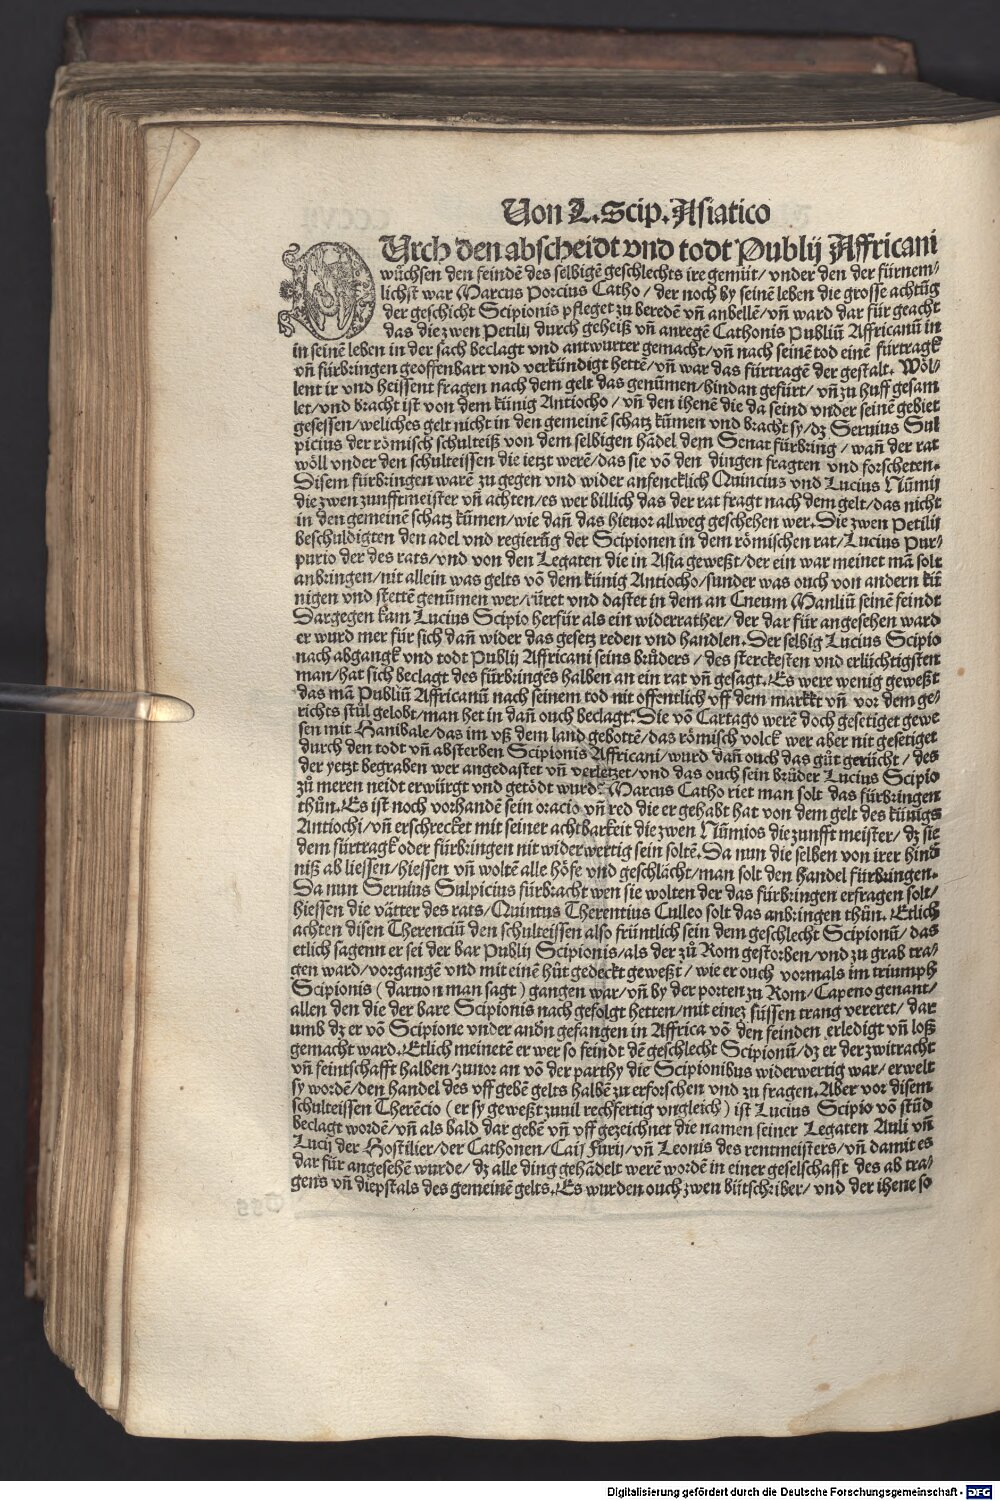 Von L. Scip. Asiatico
DUrch den abscheidt vnd todt Publij Affricani
wůchsen den feindē des selbigē geschlechts ire gemüt/ vnder den der fürnem⸗
lichst war Marcus Porcius Catho/ der noch by seinē leben die grosse achtūg
der geschicht Scipionis pfleget zu beredē vñ anbellē/ vñ ward dar für geacht
das die zwen Petilij durch geheiß vñ anregē Cathonis Publiū Affricanū in
in seinē leben in der sach beclagt vnd antwurter gemacht/ vñ nach seinē tod einē fürtragk
vñ fürbringen geoffenbart vnd verkündigt hettē/ vñ war das fürtragē der gestalt. Wöl⸗
lent ir vnd heissent fragen nach dem gelt das genūmen/ hindan gefürt/ vñ zu huff gesam
let/ vnd bracht ist von dem künig Antiocho/ vñ den ihenē die da seind vnder seinē gebiet
gesessen/ weliches gelt nicht in den gemeinē schatz kūmen vnd bracht sy/ dz Seruius Sul
picius der römisch schulteiß von dem selbigen hādel dem Senat fürbring/ wañ der rat
wöll vnder den schulteissen die ietzt werē/ das sie vō den dingen fragten vnd forscheten.
Disem fürbringen warē zu gegen vnd wider anfencklich Quincius vnd Lucius Nūmij
die zwen zunfftmeister vñ achten/ es wer billich das der rat fragt nach dem gelt/ das nicht
in den gemeinē schatz kūmen/ wie dañ das hieuor allweg geschehen wer. Die zwen Petilij
beschuldigten den adel vnd regierūg der Scipionen in dem römischen rat/ Lucius Pur⸗
purio der des rats/ vnd von den Legaten die in Asia geweßt/ der ein war meinet mā solt
anbringen/ nit allein was gelts vō dem künig Antiocho/ sunder was ouch von andern kü
nigen vnd stettē genūmen wer/ rüret vnd dastet in dem an Cneum Manliū seinē feindt
Dargegen kam Lucius Scipio herfür als ein widerrather/ der dar für angesehen ward
er wurd mer für sich dañ wider das gesetz reden vnd handlen. Der selbig Lucius Scipio
nach abgangk vnd todt Publij Affricani seins brůders/ des sterckesten vnd erlüchtigsten
man/ hat sich beclagt des fürbringēs halben an ein rat vñ gesagt. Es were wenig geweßt
das mā Publiū Affricanū nach seinem tod nit offentlich vff dem markkt vñ vor dem ge⸗
richts stůl gelobt/ man het in dañ ouch beclagt. Die vō Cartago werē doch gesetiget gewe
sen mit Hanibale/ das im vß dem land gebottē/ das römisch volck wer aber nit gesetiget
durch den todt vñ absterben Scipionis Affricani/ wurd dañ ouch das gůt gerücht/ des
der yetzt begraben wer angedastet vñ verletzet/ vnd das ouch sein brůder Lucius Scipio
zů meren neidt erwürgt vnd getödt wurd. Marcus Catho riet man solt das fürbringen
thůn. Es ist noch vorhandē sein oracio vñ red die er gehabt hat von dem gelt des künigs
Antiochi/ vñ erschrecket mit seiner achtbarkeit die zwen Nūmios die zunfft meister/ dz sie
dem fürtragk oder fürbringen nit widerwertig sein soltē. Da nun die selben von irer hind
niß ab liessen/ hiessen vñ woltē alle höfe vnd geschlächt/ man solt den handel fürbringen.
Da nun Seruius Sulpicius fürbracht wen sie wolten der das fürbringen erfragen solt/
hiessen die vätter des rats/ Quintus Therentius Culleo solt das anbringen thůn. Etlich
achten disen Therenciū den schulteissen also früntlich sein dem geschlecht Scipionū/ das
etlich sagenn er sei der bar Publij Scipionis/ als der zů Rom gestorben/ vnd zu grab tra⸗
gen ward/ vorgangē vnd mit einē hůt gedeckt geweßt/ wie er ouch vormals im triumph
Scipionis (daruon man sagt) gangen war/ vñ by der porten zu Rom/ Capeno genant/
allen den die der bare Scipionis nach gefolgt hetten/ mit einez süssen trang vereret/ dar
umb dz er vō Scipione vnder andn̄ gefangen in Affrica vō den feinden erledigt vñ loß
gemacht ward. Etlich meinetē er wer so feindt dē geschlecht Scipionū/ dz er der zwitracht
vñ feintschafft halben/ zuuor an vō der parthy die Scipionibus widerwertig war/ erwelt
sy wordē/ den handel des vff gebē gelts halbē zu erforschen vnd zu fragen. Aber vor disem
schulteissen Therēcio (er sy geweßt zuuil rechfertig vngleich) ist Lucius Scipio vō stūd
beclagt wordē/ vñ als bald dar gebē vñ vff gezeichnet die namen seiner Legaten Auli vñ
Lucij der Hostilier/ der Cathonen/ Caij Furij/ vñ Leonis des rentmeisters/ vñ damit es
dar für angesehē wurde/ dz alle ding gehādelt werē wordē in einer geselschafft des ab tra⸗
gens vñ diepstals des gemeinē gelts. Es wurden ouch zwen bütschriber/ vnd der ihene so
Digitalisierung gefördert durch die Deutsche Forschungsgemeinschaft - DFG